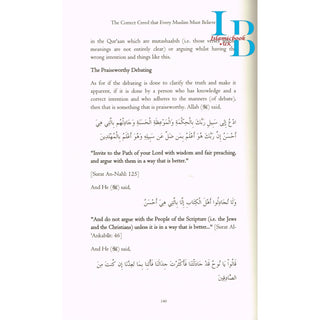 The Correct Creed that Every Muslim Must Believe
LB
Islamicbook
•UK•
in the Qur'aan which are mutashaabih (i.e. those whose
meanings are not entirely clear) or arguing whilst having the
wrong intention and things like this.
The Praiseworthy Debating
As for if the debating is done to clarify the truth and make it
apparent, if it is done by a person who has knowledge and a
correct intention and who adheres to the manners (of debate),
then that is something that is praiseworthy. Allah (ﷻ) said,
ادْعُ إِلَى سَبِيلِ رَبِّكَ بِالْحِكْمَةِ وَالْمَوْعِظَةِ الْحَسَنَةِ وَجَادِلْهُم بِالَّتِي هِيَ
أَحْسَنُ إِنَّ رَبَّكَ هُوَ أَعْلَمُ بِمَن ضَلَّ عَن سَبِيلِهِ وَهُوَ أَعْلَمُ بِالْمُهْتَدِينَ
"Invite to the Path of your Lord with wisdom and fair preaching,
and argue with them in a way that is better."
[Surat An-Nahl: 125]
And He (ﷻ) said,
وَلَا تُجَادِلُوا أَهْلَ الْكِتَابِ إِلَّا بِالَّتِي هِيَ أَحْسَنُ
"And do not argue with the People of the Scripture (i.e. the Jews
and the Christians) unless it is in a way that is better..." [Surat Al-
'Ankabût: 46]
And He (ﷻ) said,
قَالُوا يَا نُوحُ قَدْ جَادَلْتَنَا فَأَكْثَرْتَ جِدَالَنَا فَأْتِنَا بِمَا تَعِدُنَا إِن كُنتَ مِنَ
الصَّادِقِينَ